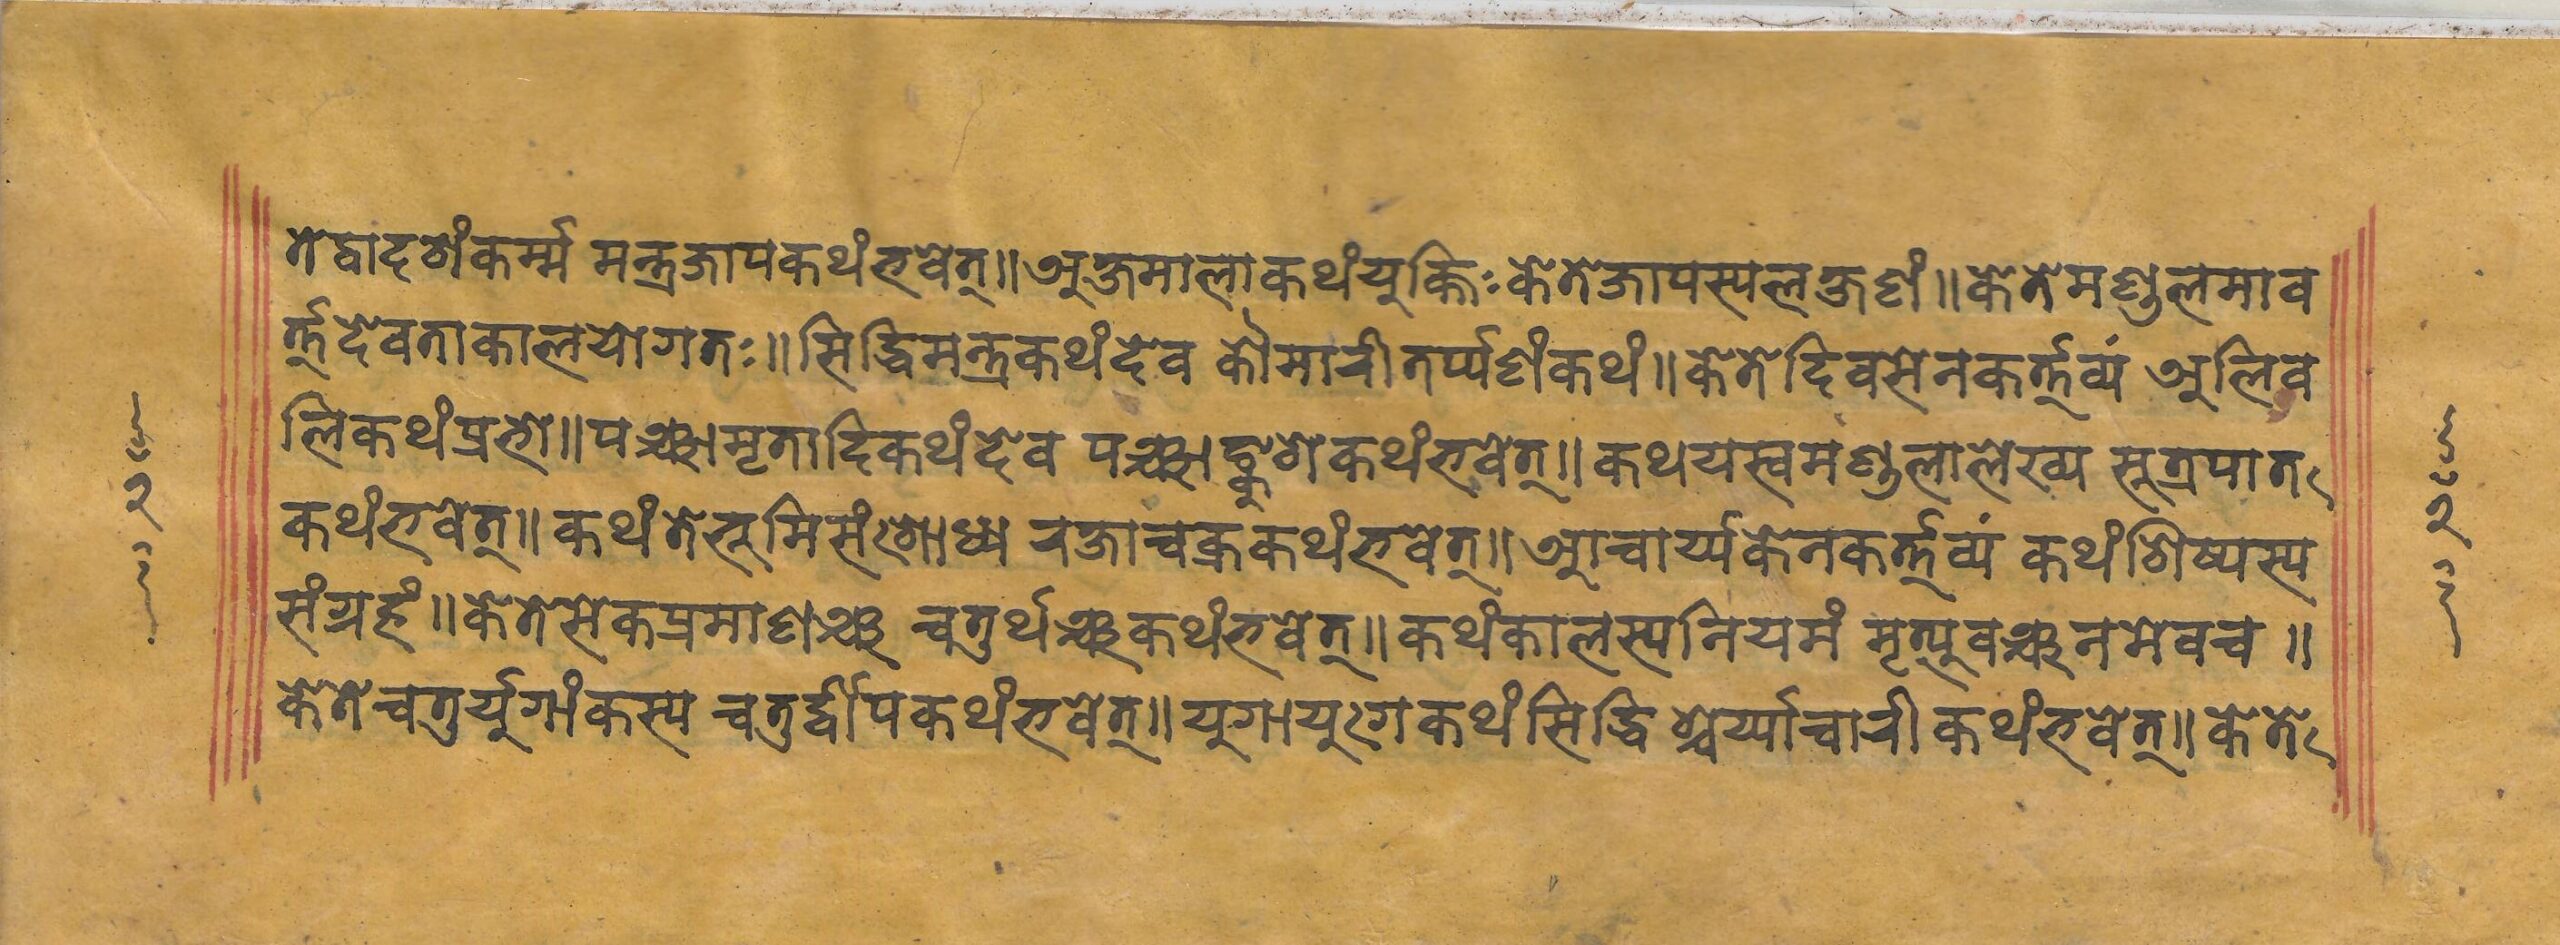 ते द्वादशं कर्म्म मन्त्रजाप कथं भवेत्॥ अक्षमाला कथं युक्तिः केते जापस्य लक्षणं॥ केते मण्डलमाव
र्त्त देवताकालयोगतः॥ सिद्धिमन्त्र कथं देव कौमारी तर्प्पणं कथं॥ केते दिवसेन कर्त्तव्यं अलिव
लि कथं प्रभो॥ पञ्चामृतादि कथं देव पञ्चाङ्कुशे कथं भवेत्॥ कथयस्व मण्डलालेख्य सूत्रपात
कथं भवेत्॥ कथं ते भूमिसंशोध्य रक्षाचक्र कथं भवेत्॥ आचार्य्य केन कर्त्तव्यं कथं शिष्यस्य
संग्रहं॥ केते सेकप्रमाणञ्च चतुर्थञ्च कथं भवेत्॥ कथं कालस्य नियमं मृत्युवञ्चनमेव च॥
केते चतुर्युगां कस्य चतुर्द्वीप कथं भवेत्॥ युगायुगे कथं सिद्धि श्चर्य्याचारी कथं भवेत्॥ केते
२
२